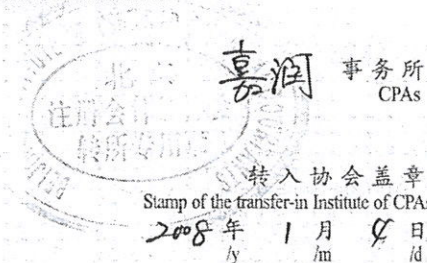 嘉润 事务所
CPAs
转入协会盖章
Stamp of the transfer-in Institute of CPAs
2008 年 1 月 4 日
/y /m /d